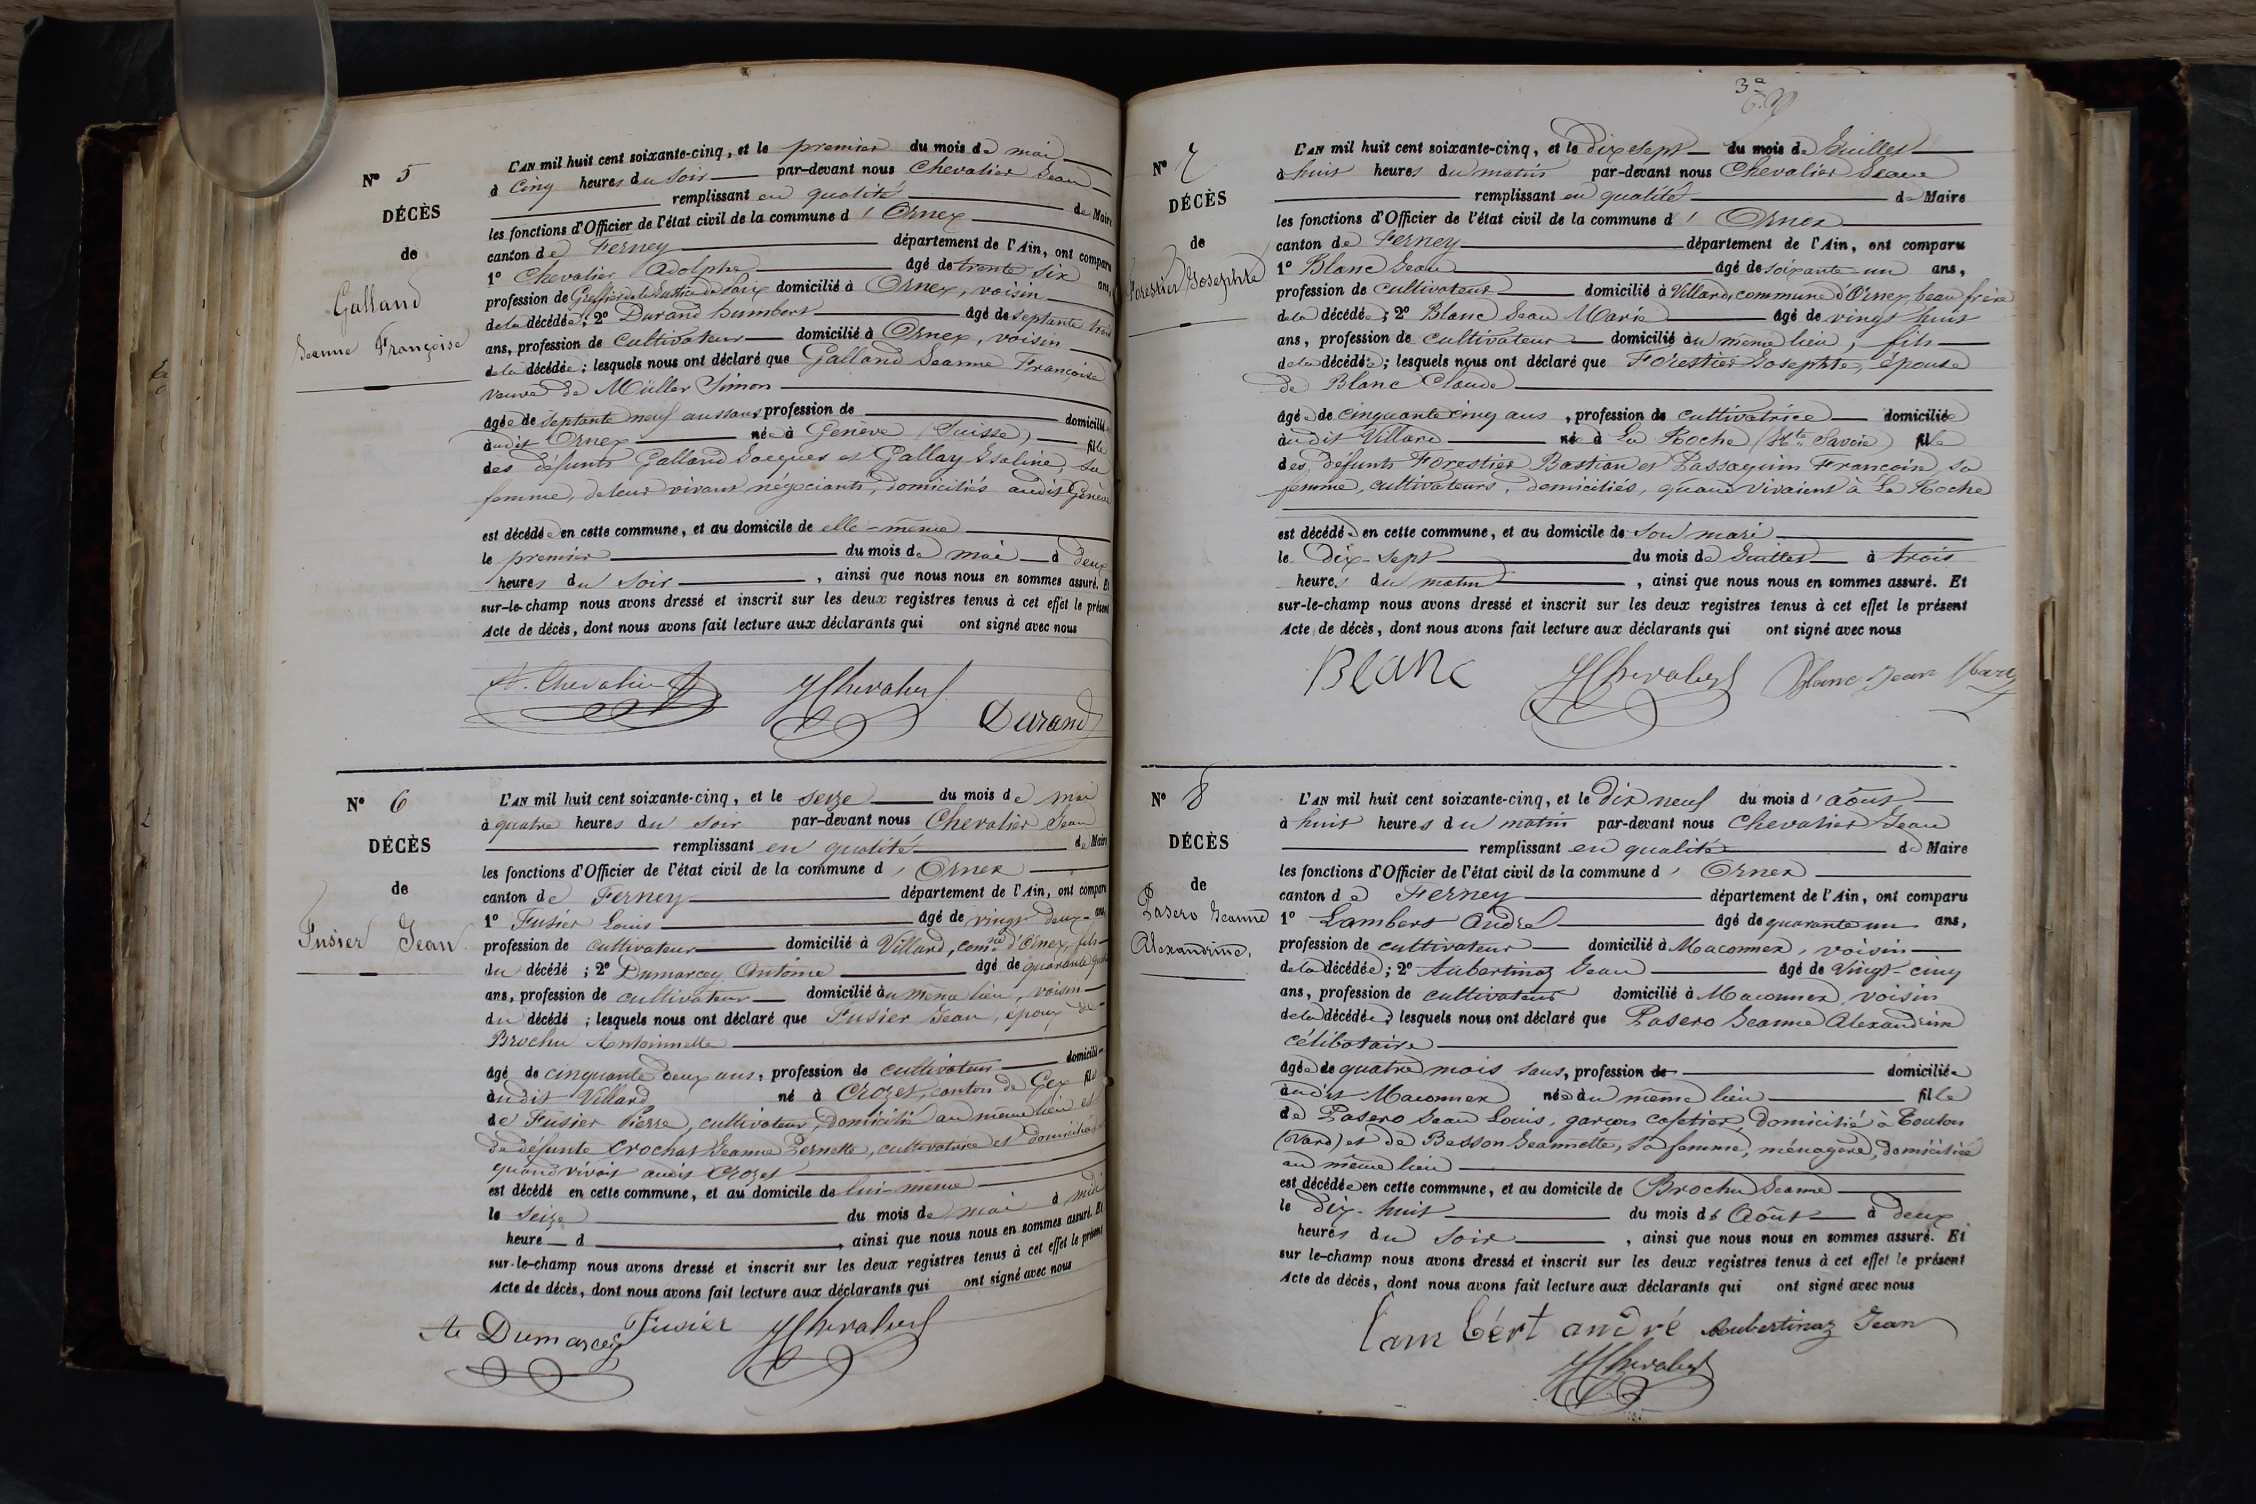 N° 5
DÉCÈS
de
Galland
Jeanne Françoise
L'AN mil huit cent soixante-cinq, et le premier du mois de mai
à cinq heures du soir par-devant nous Chevalier Jean
remplissant en qualité de Maire
les fonctions d'Officier de l'état civil de la commune d'Ornex
canton de Ferney département de l'Ain, ont comparu
1° Chevalier Adolphe âgé de trente six ans,
profession de Greffier de la Justice de Paix domicilié à Ornex, voisin
de la décédée; 2° Durand humbert âgé de septante trois
ans, profession de Cultivateur domicilié à Ornex, voisin
de la décédée; lesquels nous ont déclaré que Galland Jeanne Françoise
veuve de Müller Simon
âgée de septante neuf ans sans profession de domiciliée
audit Ornex née à Genève (Suisse) fille
des défunts Galland Jacques et Gallay Isaline, sa
femme, de leur vivant négociants, domiciliés audit Genève
est décédée en cette commune, et au domicile de elle-même
le premier du mois de mai à deux
heures du soir, ainsi que nous nous en sommes assuré. Et
sur-le-champ nous avons dressé et inscrit sur les deux registres tenus à cet effet le présent
Acte de décès, dont nous avons fait lecture aux déclarants qui ont signé avec nous
A. Chevalier JChevalier
Durand
N° 6
DÉCÈS
de
Fusier Jean
L'AN mil huit cent soixante-cinq, et le seize du mois de mai
à quatre heures du soir par-devant nous Chevalier Jean
remplissant en qualité de Maire
les fonctions d'Officier de l'état civil de la commune d'Ornex
canton de Ferney département de l'Ain, ont comparu
1° Fusier Louis âgé de vingt deux ans,
profession de cultivateur domicilié à Villard, comne d'Ornex, fils
du décédé; 2° Dumarcey Antoine âgé de quarante quatre
ans, profession de cultivateur domicilié au même lieu, voisin
du décédé; lesquels nous ont déclaré que Fusier Jean, époux de
Brochu Antoinnette
âgé de cinquante deux ans, profession de cultivateur domicilié
audit Villard né à Crozet, canton de Gex fils
de Fusier Pierre, cultivateur, domicilié au même lieu et
de défunte Crochat Jeanne Pernette, cultivatrice et domiciliée
quand vivait audit Crozet
est décédé en cette commune, et au domicile de lui-même
le seize du mois de mai à midi
heure d, ainsi que nous nous en sommes assuré. Et
sur-le-champ nous avons dressé et inscrit sur les deux registres tenus à cet effet le présent
Acte de décès, dont nous avons fait lecture aux déclarants qui ont signé avec nous
Dumarcey Fusier JChevalier
3e
N° 7
DÉCÈS
de
Forestier Josephte
L'AN mil huit cent soixante-cinq, et le dix sept du mois de Juillet
à huit heures du matin par-devant nous Chevalier Jean
remplissant en qualité de Maire
les fonctions d'Officier de l'état civil de la commune d'Ornex
canton de Ferney département de l'Ain, ont comparu
1° Blanc Jean âgé de soixante un ans,
profession de cultivateur domicilié à Villard, commune d'Ornex beau frère
de la décédée; 2° Blanc Jean Marie âgé de vingt huit
ans, profession de cultivateur domicilié au même lieu, fils
de la décédée; lesquels nous ont déclaré que Forestier Josephte, épouse
de Blanc Claude
âgée de cinquante cinq ans, profession de cultivatrice domiciliée
audit Villard né à La Roche (Hte Savoie) fille
des défunts Forestier Bastian et Passaquin Francoise, sa
femme, cultivateurs, domiciliés, quand vivaient à La Roche
est décédée en cette commune, et au domicile de son mari
le Dix-sept du mois de Juillet à trois
heures du matin, ainsi que nous nous en sommes assuré. Et
sur-le-champ nous avons dressé et inscrit sur les deux registres tenus à cet effet le présent
Acte de décès, dont nous avons fait lecture aux déclarants qui ont signé avec nous
Blanc JChevalier Blanc Jean Marie
N° 8
DÉCÈS
de
Pasero Jeanne
Alexandrine,
L'AN mil huit cent soixante-cinq, et le dix neuf du mois d'août
à huit heures du matin par-devant nous Chevalier Jean
remplissant en qualité de Maire
les fonctions d'Officier de l'état civil de la commune d'Ornex
canton de Ferney département de l'Ain, ont comparu
1° Lambert André âgé de quarante un ans,
profession de cultivateur domicilié à Maconnex, voisin
de la décédée; 2° Aubertinaz Jean âgé de vingt-cinq
ans, profession de cultivateur domicilié à Maconnex, voisin
de la décédée; lesquels nous ont déclaré que Pasero Jeanne Alexandrine
célibataire
âgée de quatre mois sans, profession de domiciliée
audit Maconnex née au même lieu fille
de Pasero Jean Louis, garçon cafetier, domicilié à Toulon
(Vard) et de Besson Jeannette, sa femme, ménagère, domiciliée
au même lieu
est décédée en cette commune, et au domicile de Brochu Jeanne
le Dix-huit du mois de Août à deux
heures du soir, ainsi que nous nous en sommes assuré. Et
sur le-champ nous avons dressé et inscrit sur les deux registres tenus à cet effet le présent
Acte de décès, dont nous avons fait lecture aux déclarants qui ont signé avec nous
lambért andré Aubertinaz Jean
JChevalier